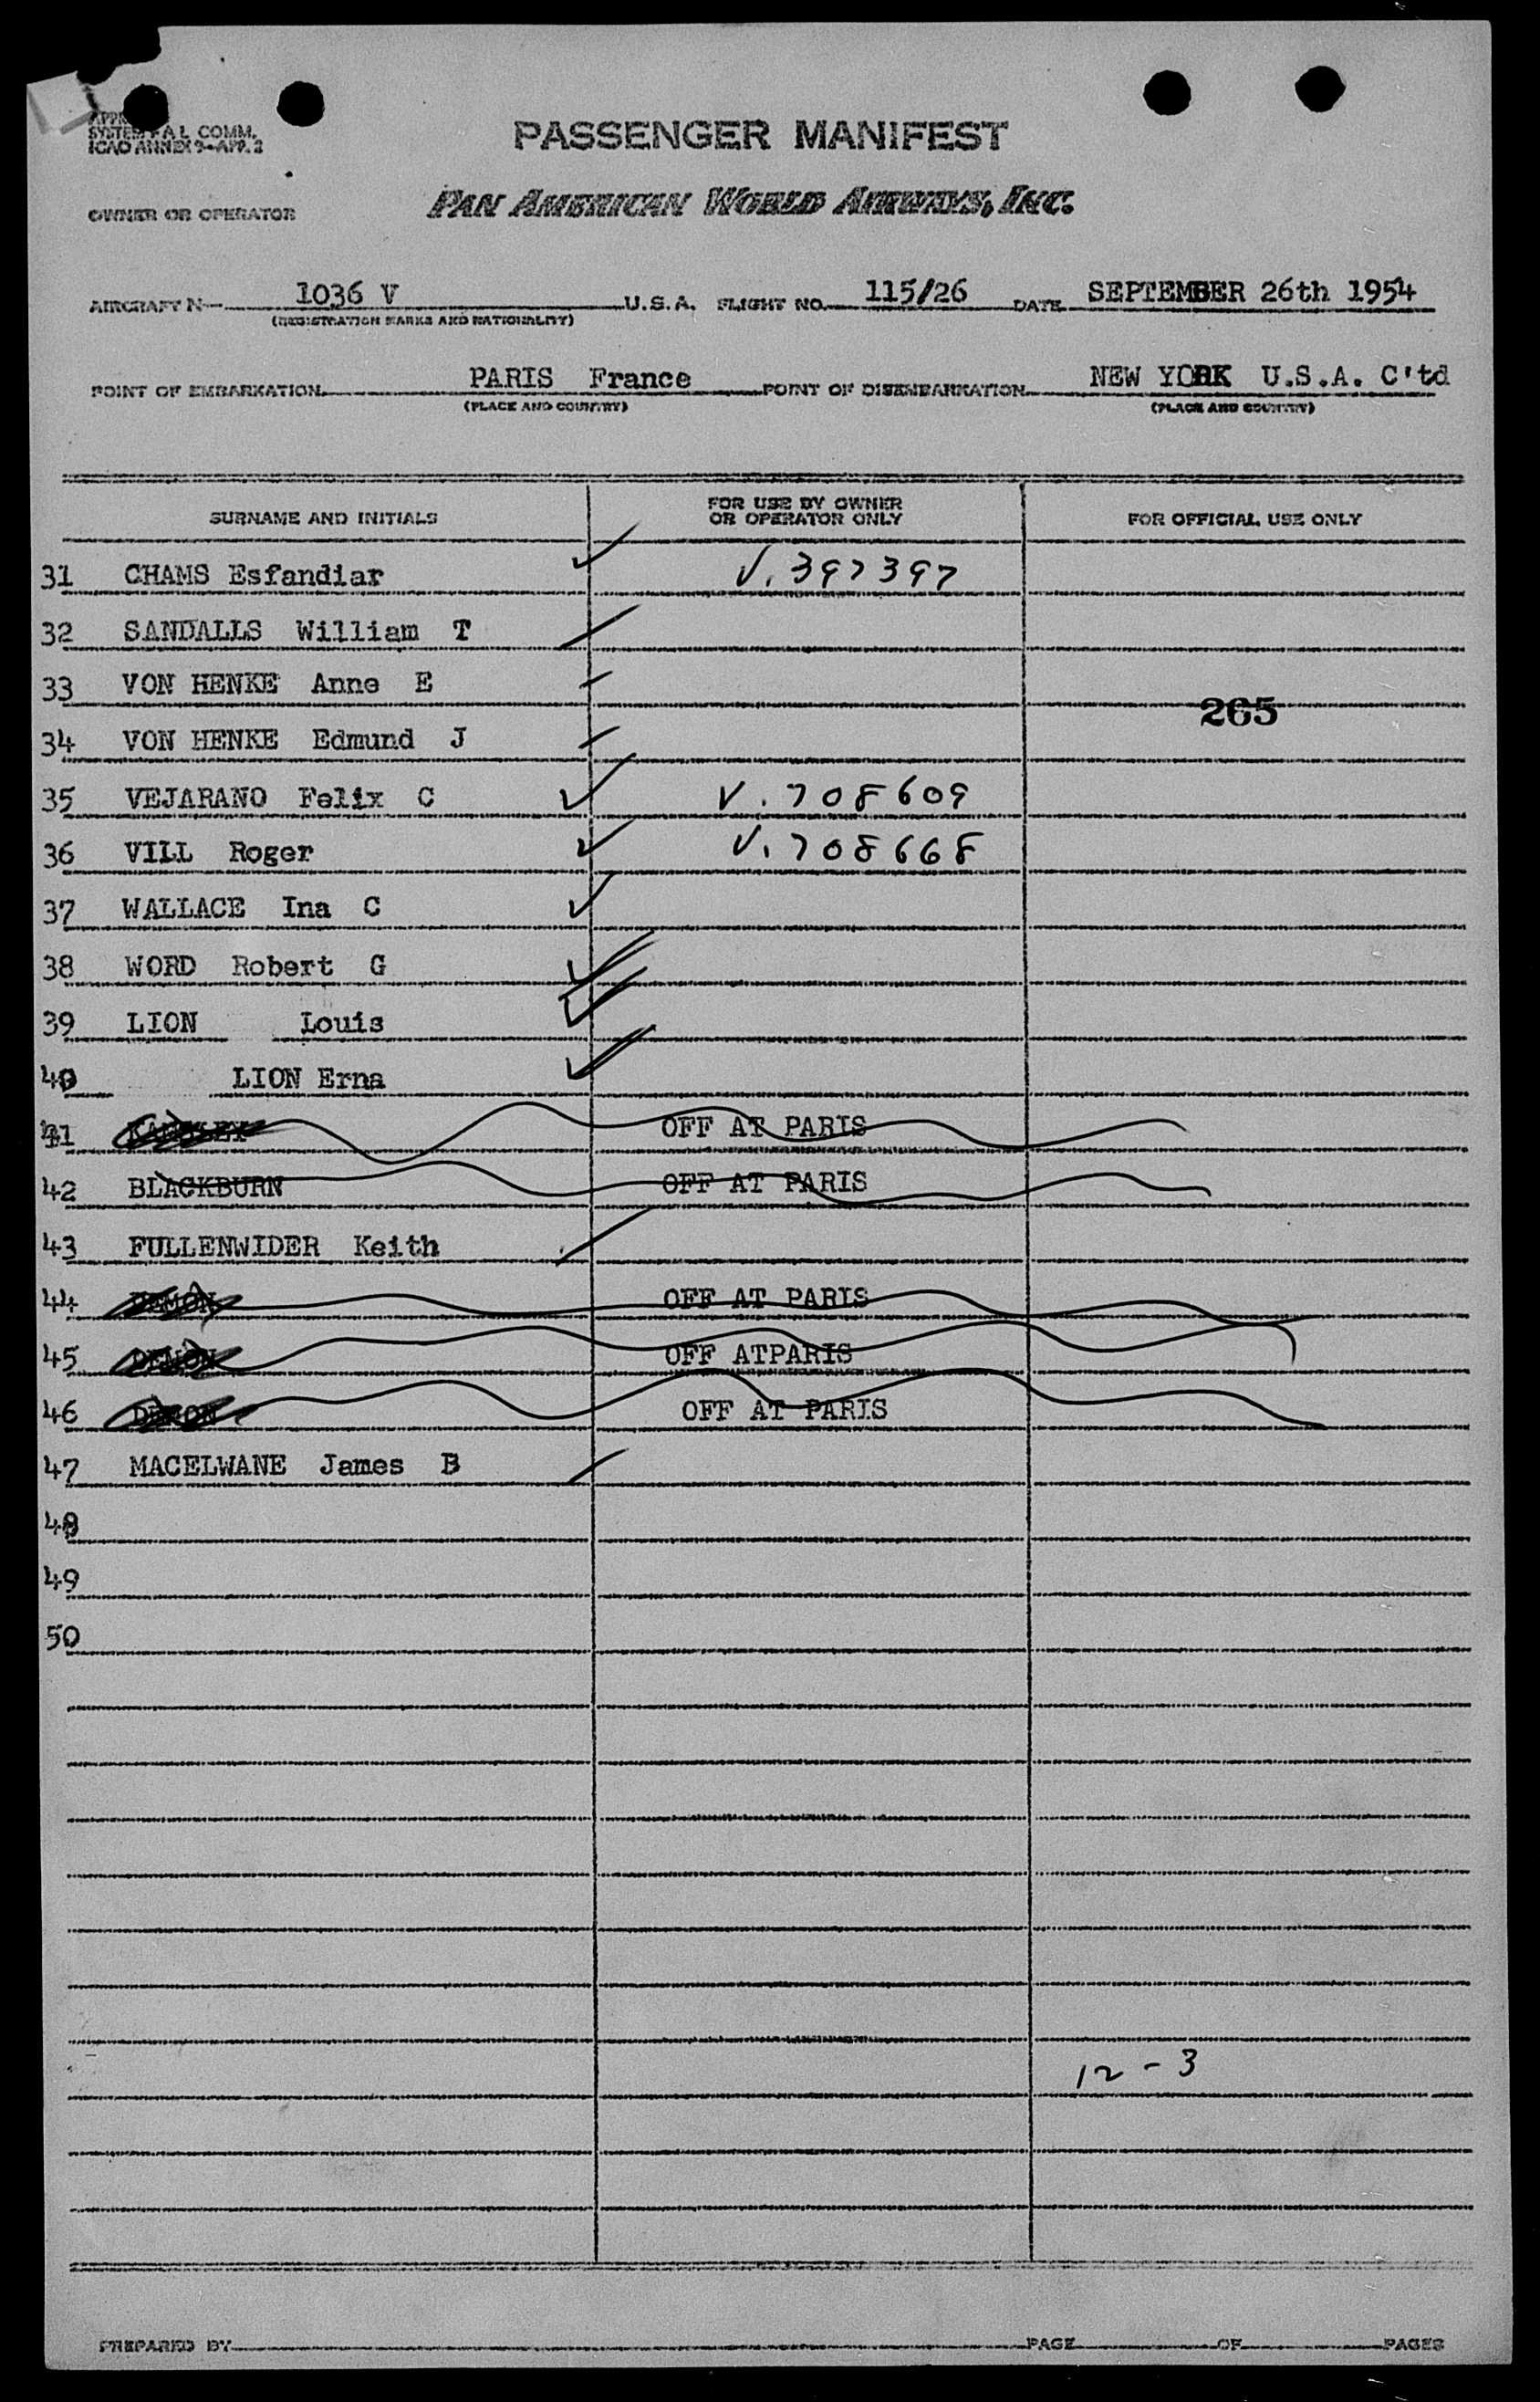 SYSTEM FAL COMM.
ICAO ANNEX 9-APP. 2
PASSENGER MANIFEST
OWNER OR OPERATOR PAN AMERICAN WORLD AIRWAYS, INC.
AIRCRAFT N- 1036 V U.S.A. FLIGHT NO. 115/26 DATE SEPTEMBER 26th 1954
(REGISTRATION MARKS AND NATIONALITY)
POINT OF EMBARKATION PARIS France POINT OF DISEMBARKATION NEW YORK U.S.A. C'td
(PLACE AND COUNTRY) (PLACE AND COUNTRY)
SURNAME AND INITIALS FOR USE BY OWNER OR OPERATOR ONLY FOR OFFICIAL USE ONLY
31 CHAMS Esfandiar V. 397397
32 SANDALLS William T
33 VON HENKE Anne E
265
34 VON HENKE Edmund J
35 VEJARANO Felix C V. 708609
36 VILL Roger V. 708668
37 WALLACE Ina C
38 WORD Robert G
39 LION Louis
40 LION Erna
41 OFF AT PARIS
42 BLACKBURN OFF AT PARIS
43 FULLENWIDER Keith
44 DEMON OFF AT PARIS
45 DEMON OFF ATPARIS
46 DEMON OFF AT PARIS
47 MACELWANE James B
48
49
50
12 - 3
PREPARED BY PAGE OF PAGES